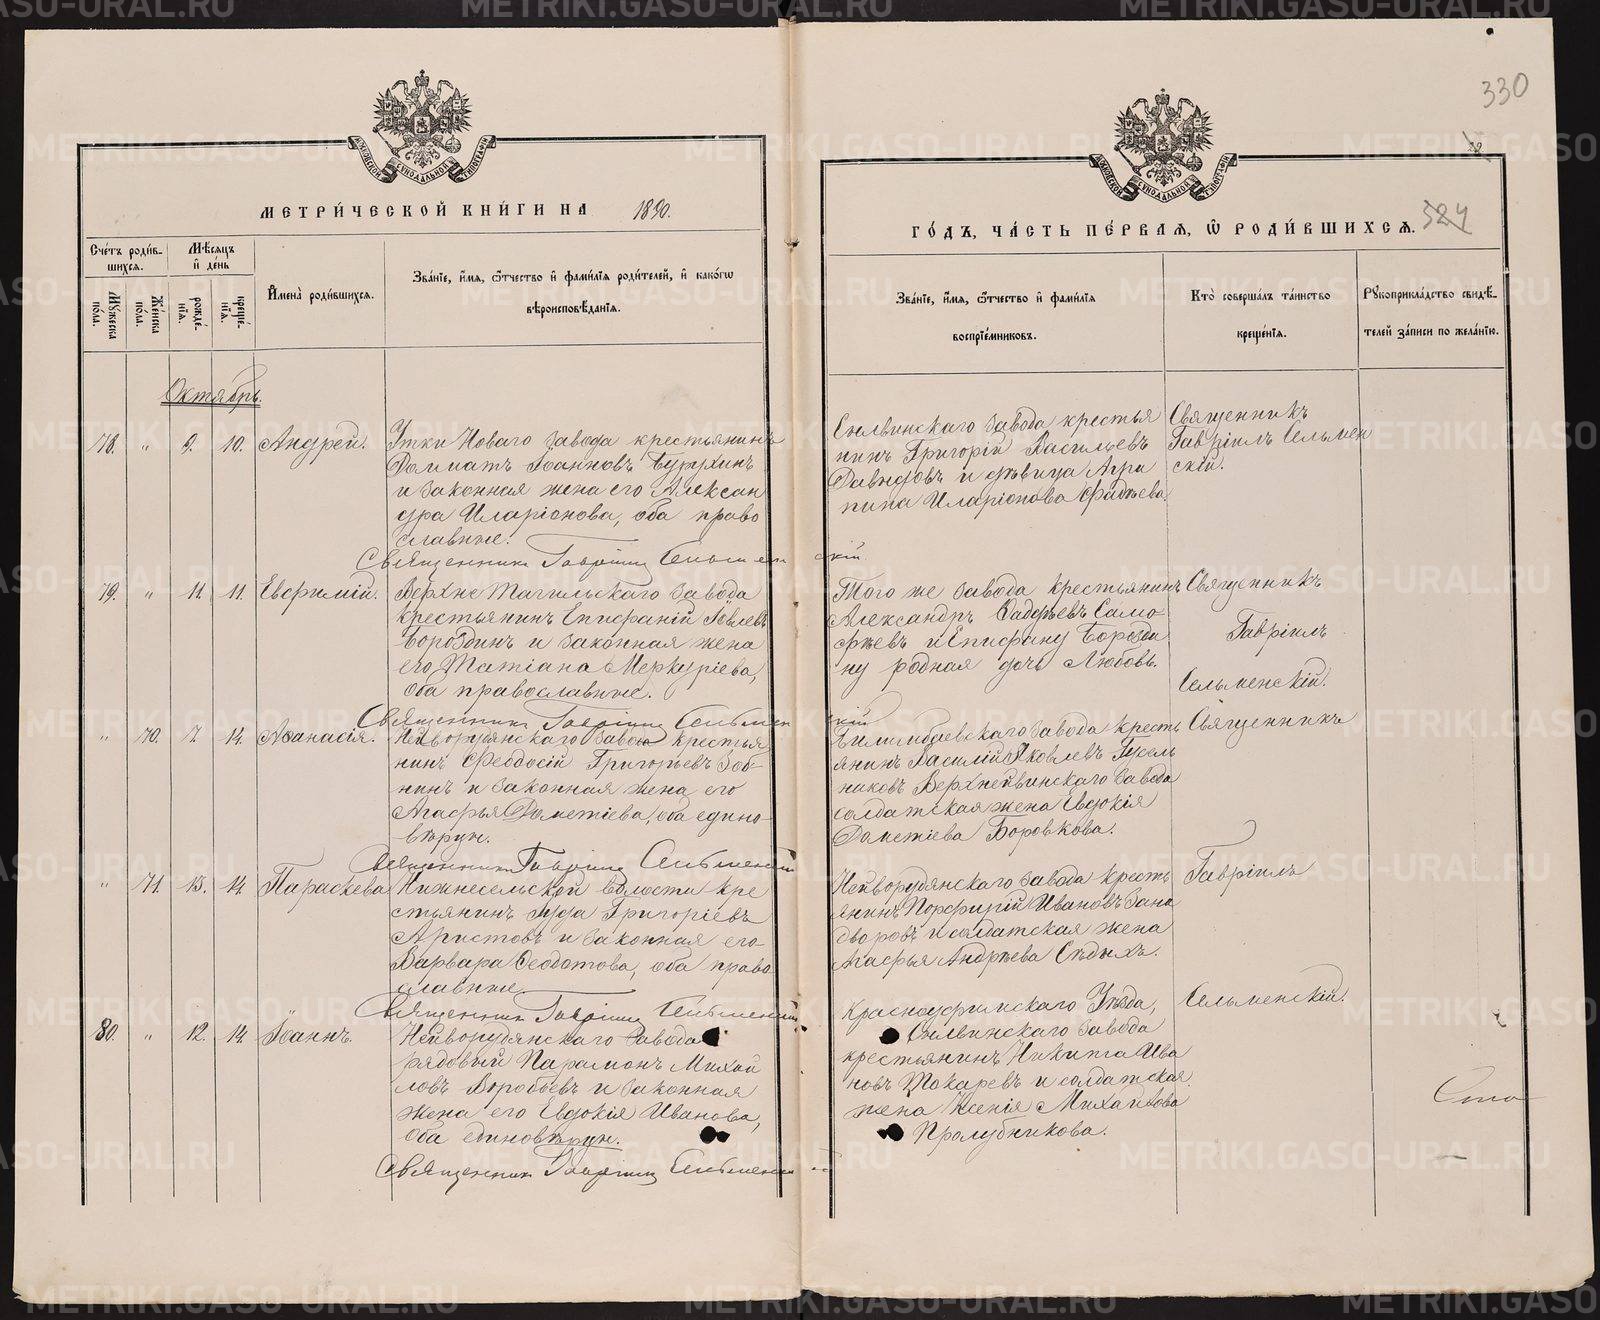 330
МОСКОВСКОЙ СѴНОДАЛЬНОЙ ТѴПОГРАФІИ
МОСКОВСКОЙ СѴНОДАЛЬНОЙ ТѴПОГРАФІИ
МЕТРИ́ЧЕСКОЙ КНИ́ГИ НА 1890.
ГО́ДЪ, ЧА́СТЬ ПЕ́РВАЯ, Ѽ РОДИ́ВШИХСЯ. 324
Сче́тъ роди́в-
шихся.
Мѣ́сяцъ
и҆ де́нь
Мꙋ́жеска
по́ла.
Же́нска
по́ла.
рожде́-
нїя.
креще́-
нїя.
И҆мена̀ роди́вшихся.
Зва́нїе, и҆́мя, ѻ҆́тчество и҆ фами́лїя роди́телей, и҆ како́гѡ
вѣроисповѣ́данїя.
Зва́нїе, и҆́мя, ѻ҆́тчество и҆ фами́лїя
воспрїе́мниковъ.
Кто̀ соверша́лъ та́инство
креще́нїя.
Рꙋкоприкла́дство свидѣ́-
телей за́писи по жела́нїю.
Октябрь.
78. " 9. 10. Андрей.
Утки Новаго завода крестьянинъ
Далматъ Іоанновъ Бурухинъ
и законная жена его Алексан
дра Иларіонова, оба право
славные.
Священникъ Гавріилъ Сельменскій
Сылвинскаго завода крестья
нинъ Григорій Васильевъ
Давыдовъ и дѣвица Агри
пина Иларіонова Фадѣева.
Священникъ
Гавріилъ Сельмен
скій.
79. " 11. 11. Евфимій.
Верхне Тагильскаго завода
крестьянинъ Епифаній Іовлевъ
Бороздинъ и законная жена
его Татіана Меркуріева,
оба православные.
Священникъ Гавріилъ Сельменскій
Того же завода крестьянинъ
Александръ Само
и Епифану Борозди
ну родная дочь Любовь.
Священникъ
Гавріилъ
Сельменскій.
" 70. 7. 14. Аѳанасія.
Нейворудянскаго завода крестья
нинъ Ѳеодосій Григорьевъ Зоб-
нинъ и законная жена его
Агафья Дометіева, оба едино-
вѣрцы.
Священникъ Гавріилъ Сельменскій
Билимбаевскаго завода кресть
янинъ Василій Яковлевъ Гусель
никовъ Верхнейвинскаго завода
солдатская жена Евдокія
Дометіева Боровкова.
Священникъ
" 71. 13. 14. Параскева
Нижнесельской волости кре
стьянинъ Іуда Григоріевъ
Аристовъ и законная его
Варвара Ѳеодотова, оба право
славные.
Священникъ Гавріилъ Сельменскій
Нейворудянскаго завода кресть
янинъ Порфирій Ивановъ Зана
дворовъ и солдатская жена
Агафья Андреева Сѣдыхъ.
Гавріилъ
80. " 12. 14. Іоаннъ.
Нейворудянскаго завода
рядовый Парамонъ Михай
ловъ Воробьевъ и законная
жена его Евдокія Иванова,
оба единовѣрцы.
Священникъ Гавріилъ Сельменскій
Красноуфимскаго Уѣзда,
Сылвинскаго завода
крестьянинъ Никита Ива
новъ Токаревъ и солдатская
жена Ксенія Михайлова
Пролубникова.
Сельменскій.
METRIKI.GASO-URAL.RU